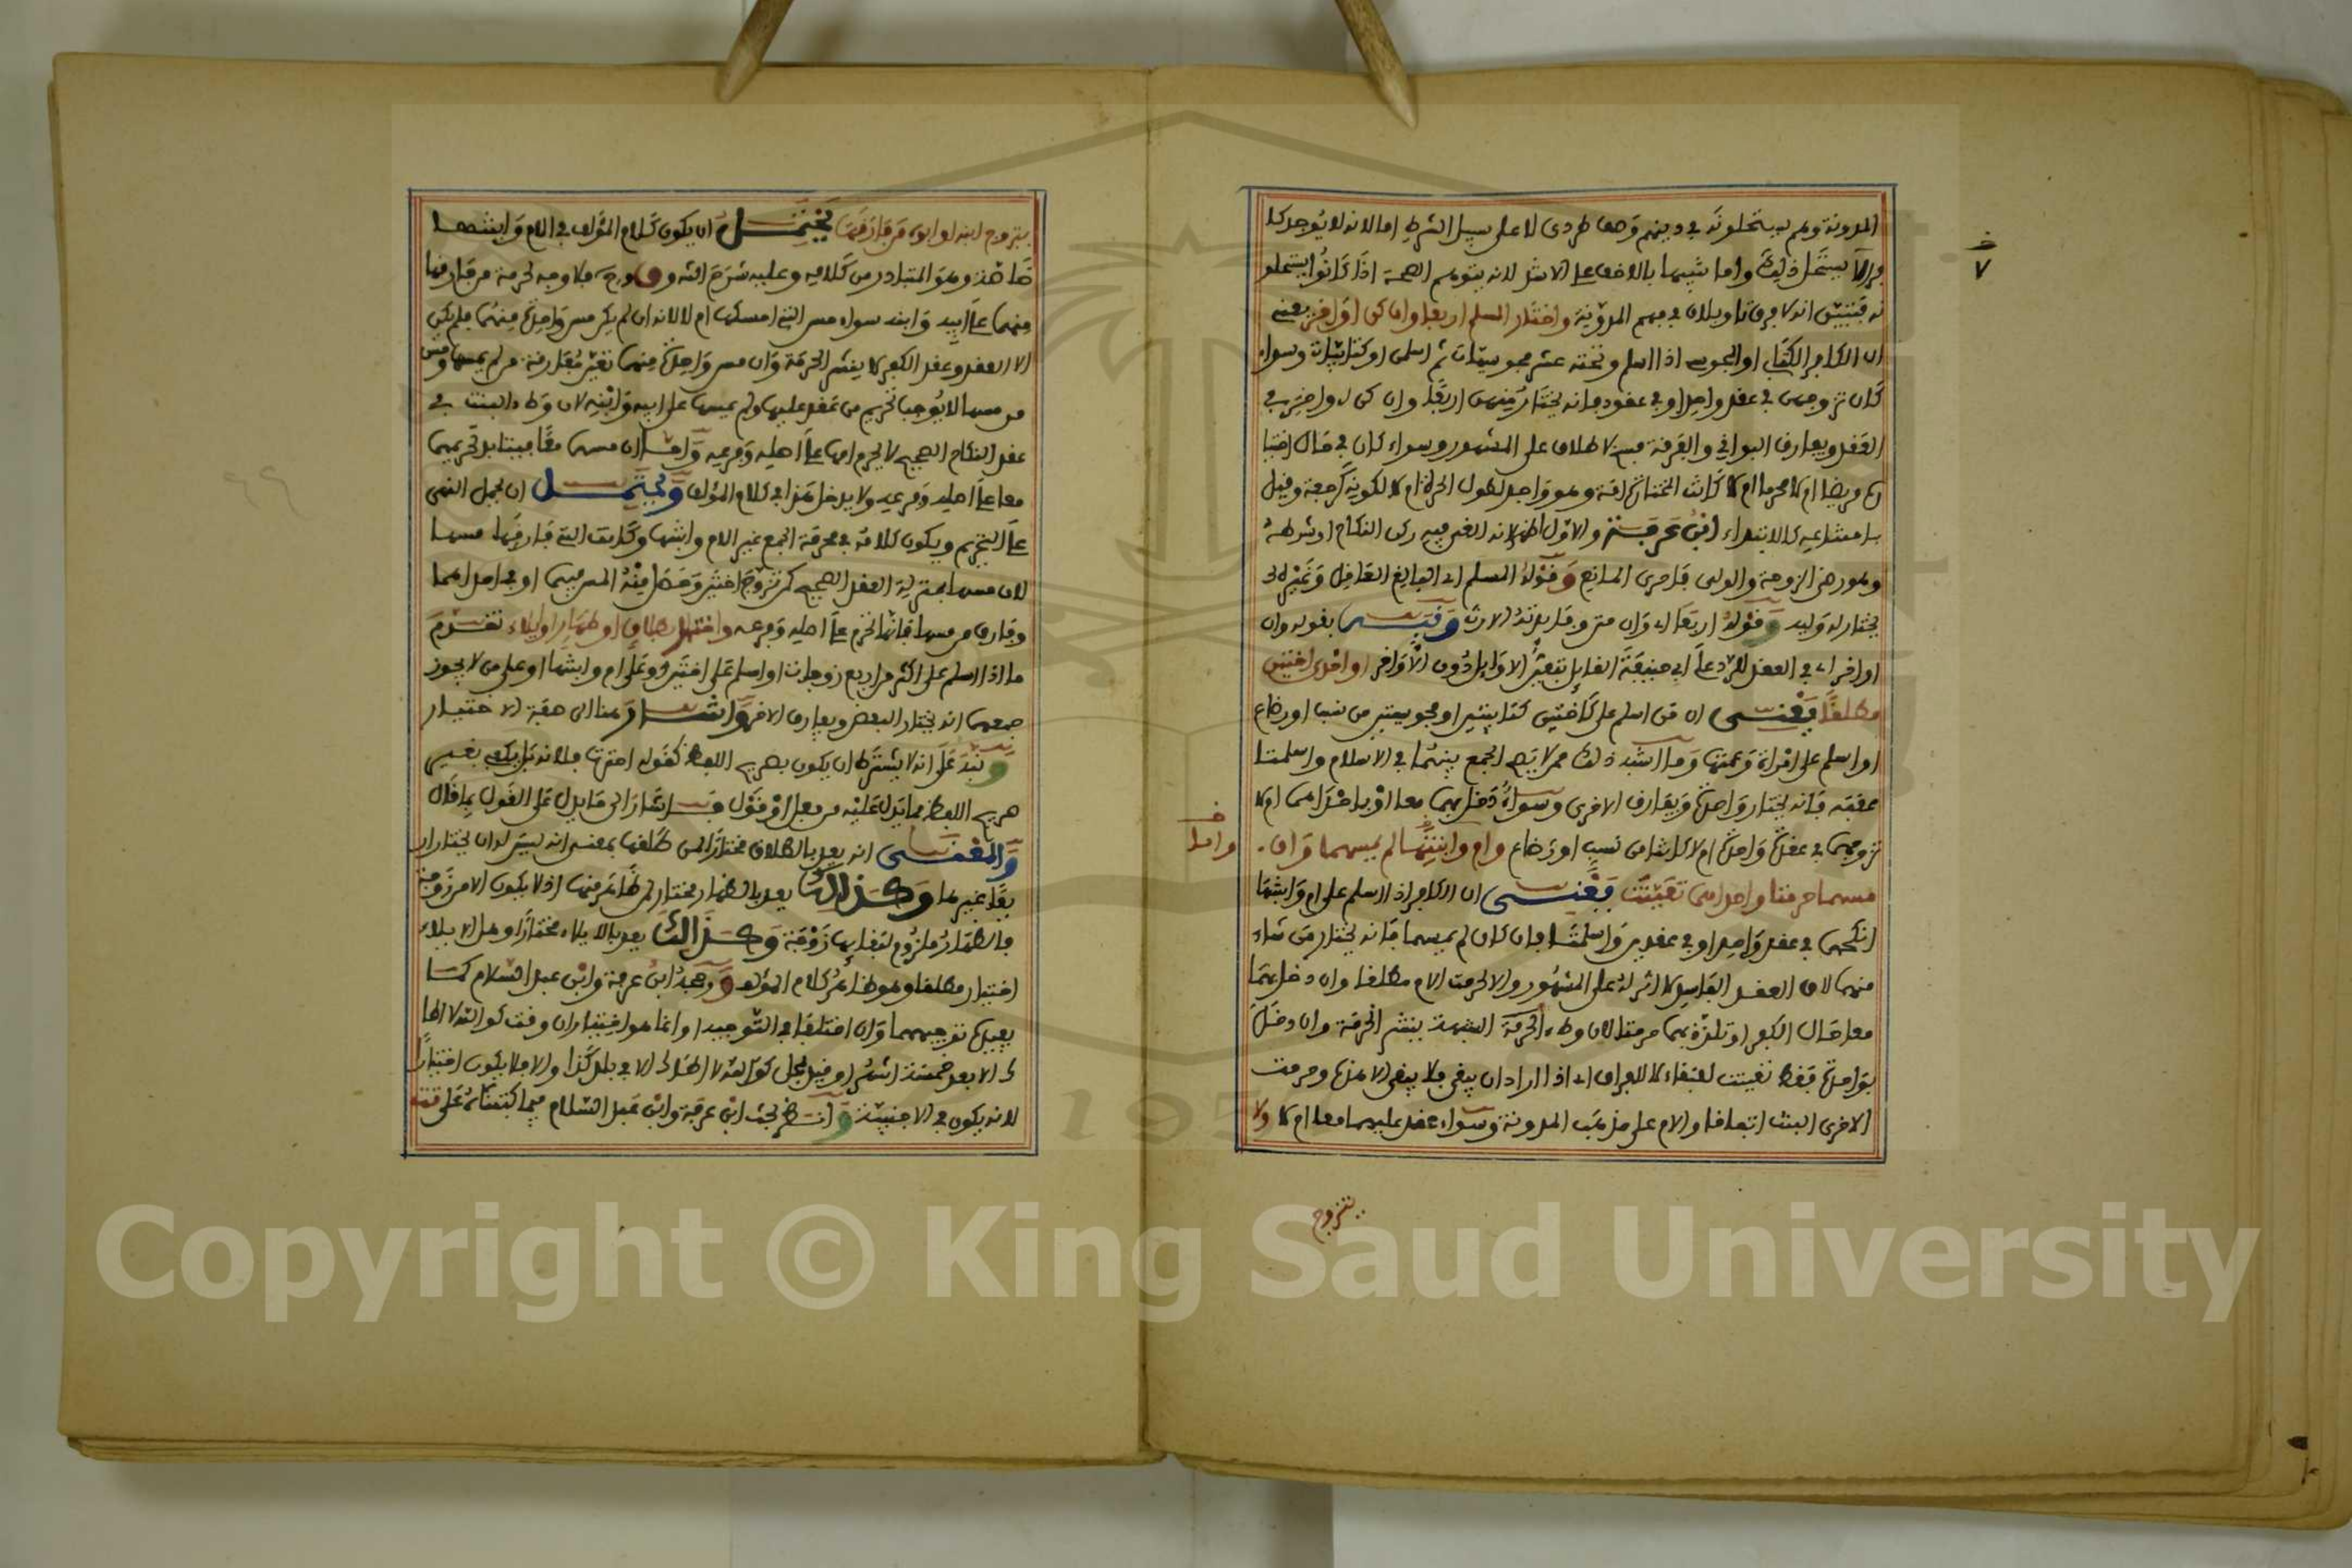 المدونة وهم يستحلونه في دينهم وصف طردي لا على سبيل الشرط اما لانه لا يوجد كا
فر الا يستحل ذلك واما تنبيها بالاخف على الاثقل لانه يتوهم الصحة اذا كانوا يستحلو
نه فتبين انه لا فرق تاويلان في فهم المدونة واختار المسلم اربعا وان كن اواخر يعني
ان الكافر الكتابي او المجوسي اذا اسلم وتحته عشر مجوسيات ثم اسلمن او كتابيات وسواء
كان تزوجهن في عقد واحد او في عقود فانه يختار منهن اربعا وان كن اواخر في
العقد ويفارق البواقي والفرقة فسخ لا طلاق على المشهور وسواء كان في حال اختيا
ره مريضا ام لا محرما ام لا كانت المختارة امة وهو واجد لطول الحرة ام لا لكونه كرجعة وقيل
بامتناعه كالابتداء ابن عرفة والاول اظهر لانه الغي فيه ركن النكاح او شرطه
وهو رضى الزوجة والولي فاحرى المانع وقوله المسلم اي البالغ العاقل وغيره
يختار له وليه وقوله اربعا اي وان متن وفائدته الارث ونبه بقوله وان
اواخر اي في العقد للرد على ابي حنيفة القايل بتعين الاوايل دون الاواخر او احدى اختين
مطلقا يعني ان من اسلم على كاختين كتابيتين او مجوسيتين من نسب او رضاع
او اسلم على امراة وعمتها وما اشبه ذلك ممن لا يصح الجمع بينهما في الاسلام واسلمتا
معه فانه يختار واحدة ويفارق الاخرى وسواء دخل بهما معا او باحداهما ام لا
تزوجهما في عقدة واحدة ام لا كل اشا من نسب او رضاع وام وابنتها لم يمسهما وان
مسهما حرمتا واحداهما تعينت يعني ان الكافر اذا اسلم على ام وابنتها
انكحهما في عقد واحد او في عقدين واسلمتا فان كان لم يمسهما فانه يختار من شاء
منهما لان العقد الفاسد لا اثر له على المشهور والا لحرمت الام مطلقا وان دخل بهما
معا حال الكفر او تلذذ بهما حرمتا لان وطء الشبهة ينشر الحرمة وان دخل
بواحدة فقط تعينت للبقاء لا للفراق اي اذا اراد ان يبقي فلا يبقي الا هذه وحرمت
الاخرى البنت اتفاقا والام على مذهب المدونة وسواء عقد عليهما معا ام لا ولا
يتزوج
خ
٧
خ
واما
يتزوج ابنه او ابوه من فارقها يحتمل ان يكون كلام المؤلف في الام وابنتها
خاصة وهو المتبادر من كلامه وعليه شرح الشارح فلا وجه لحرمة من فارقها
منهما على ابيه وابنه سواء مس التي امسكها ام لا لانه ان لم يكن مس واحدة منهما فلم يكن
الا العقد وعقد الكفر لا ينشر الحرمة وان مس واحدة منهما تعين مفارقة من لم يمسها ومس
من مسها لا يوجب تحريم من عقد عليها ولم يمسها على ابيه وابنه لان وطء البنت في
عقد النكاح الصحيح لا يحرم امها على اصله وفرعه واما ان مسهما معا فبينا بل تحريمهما
معا على اصله وفرعه ولا يدخل هذا في كلام المؤلف ويحتمل ان يحمل النهي
على التحريم ويكون كلامه في محرمة الجمع غير الام وابنتها وكانت التي فارقها مسها
لان مسها بمنزلة العقد الصحيح كمن تزوج اختين وحصل منه المس فيهما او في احداهما
وفارق من مسها فانها تحرم على اصله وفرعه واختار بطلاق او ظهار او ايلاء تقدم
ما اذا اسلم على اكثر من اربع زوجات او اسلم على اختين او على ام وابنتها او على من لا يجوز
جمعهما انه يختار البعض ويفارق الاخر واشار هنا الى صفة الاختيار
ونبه على انه لا يشترط ان يكون بصريح اللفظ كقوله اخترت فلانه بل يكفي بغير
صريح اللفظ مما يدل عليه من فعل او قول وبدا بما يدل على القول بما قال
والمعنى انه يعد بالطلاق مختارا لمن طلقها بمعنى انه ليس له ان يختار ار
بعا غيرها وكذلك يعد بالظهار مختارا لمن ظاهر منها اذ لا يكون الا من زوجة
فالظهار ملزوم لبقائها زوجة وكذلك يعد بالايلاء مختارا وهل الايلاء
اختيار مطلقا وهو ظاهر كلام المؤلف ورجحه ابن عرفة وابن عبد السلام كما
يفيده توجيههما وان اختلفا في التوجيه او انما هو اختيار ان وقت كوالله لا اطا
ك الا بعد خمسة اشهر او قيد بمحل كوالله لا اطؤك الا في بلد كذا والا فلا يكون اختيارا
لانه يكون في الاجنبية وانظر بحث ابن عرفة وابن عبد السلام فيما كتبناه على تته